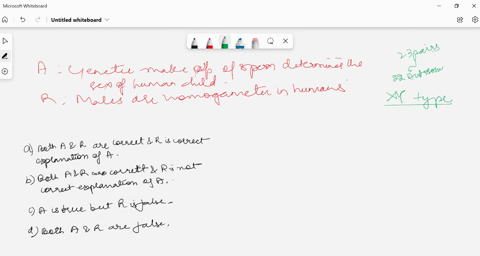 Microsoft Whiteboard
Untitled whiteboard
A : Genetic make up of sperm determines the
sex of human child.
R : Males are homogametic in humans
23 pairs
22 autosom
XY type
a) Both A & R are correct & R is correct
explanation of A.
b) Both A & R are correct & R is not
correct explanation of A.
c) A is true but R is false.
d) Both A & R are false.